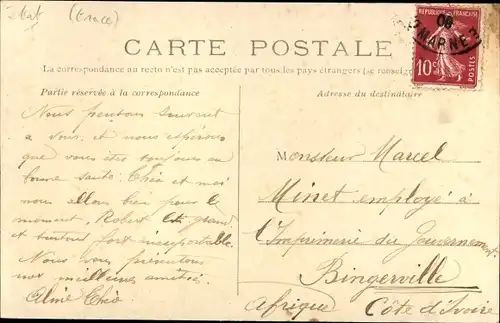 (Grece)
CARTE POSTALE
La correspondance au recto n'est pas acceptée par tous les pays étrangers (se renseign
Partie réservée à la correspondance
Adresse du destinataire
REPUBLIQUE FRANÇAISE
10c POSTES
06
MARNE
Nous pensons souvent
à vous et nous espérons
que vous êtes toujours en
bonne santé. Théo et moi
nous allons bien pour le
moment, Robert est grand
et surtout fort insupportable.
Nous vous présentons
nos meilleures amitiés
Aline Théo
Monsieur Marcel
Minet employé à
l'Imprimerie du Gouvernement
Bingerville
Afrique Côte d'Ivoire